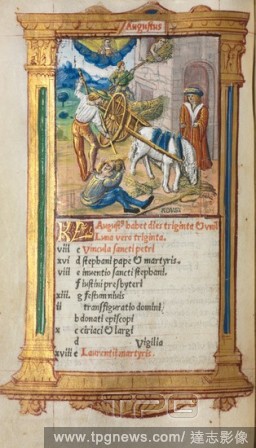 Augustus
KL Augustꝰ habet dies triginta & vnū
Luna vero triginta.
viii e Vincula sancti petri
xvi d stephani pape & martyris.
e inuentio sancti stephani.
f iustini presbyteri
xiii. g festum niuis
ii transfiguratio domini
b donati episcopi
x c ciriaci & largi
d Vigilia
xviii e Laurentii martyris.
www.tpgnews.com / 達志影像